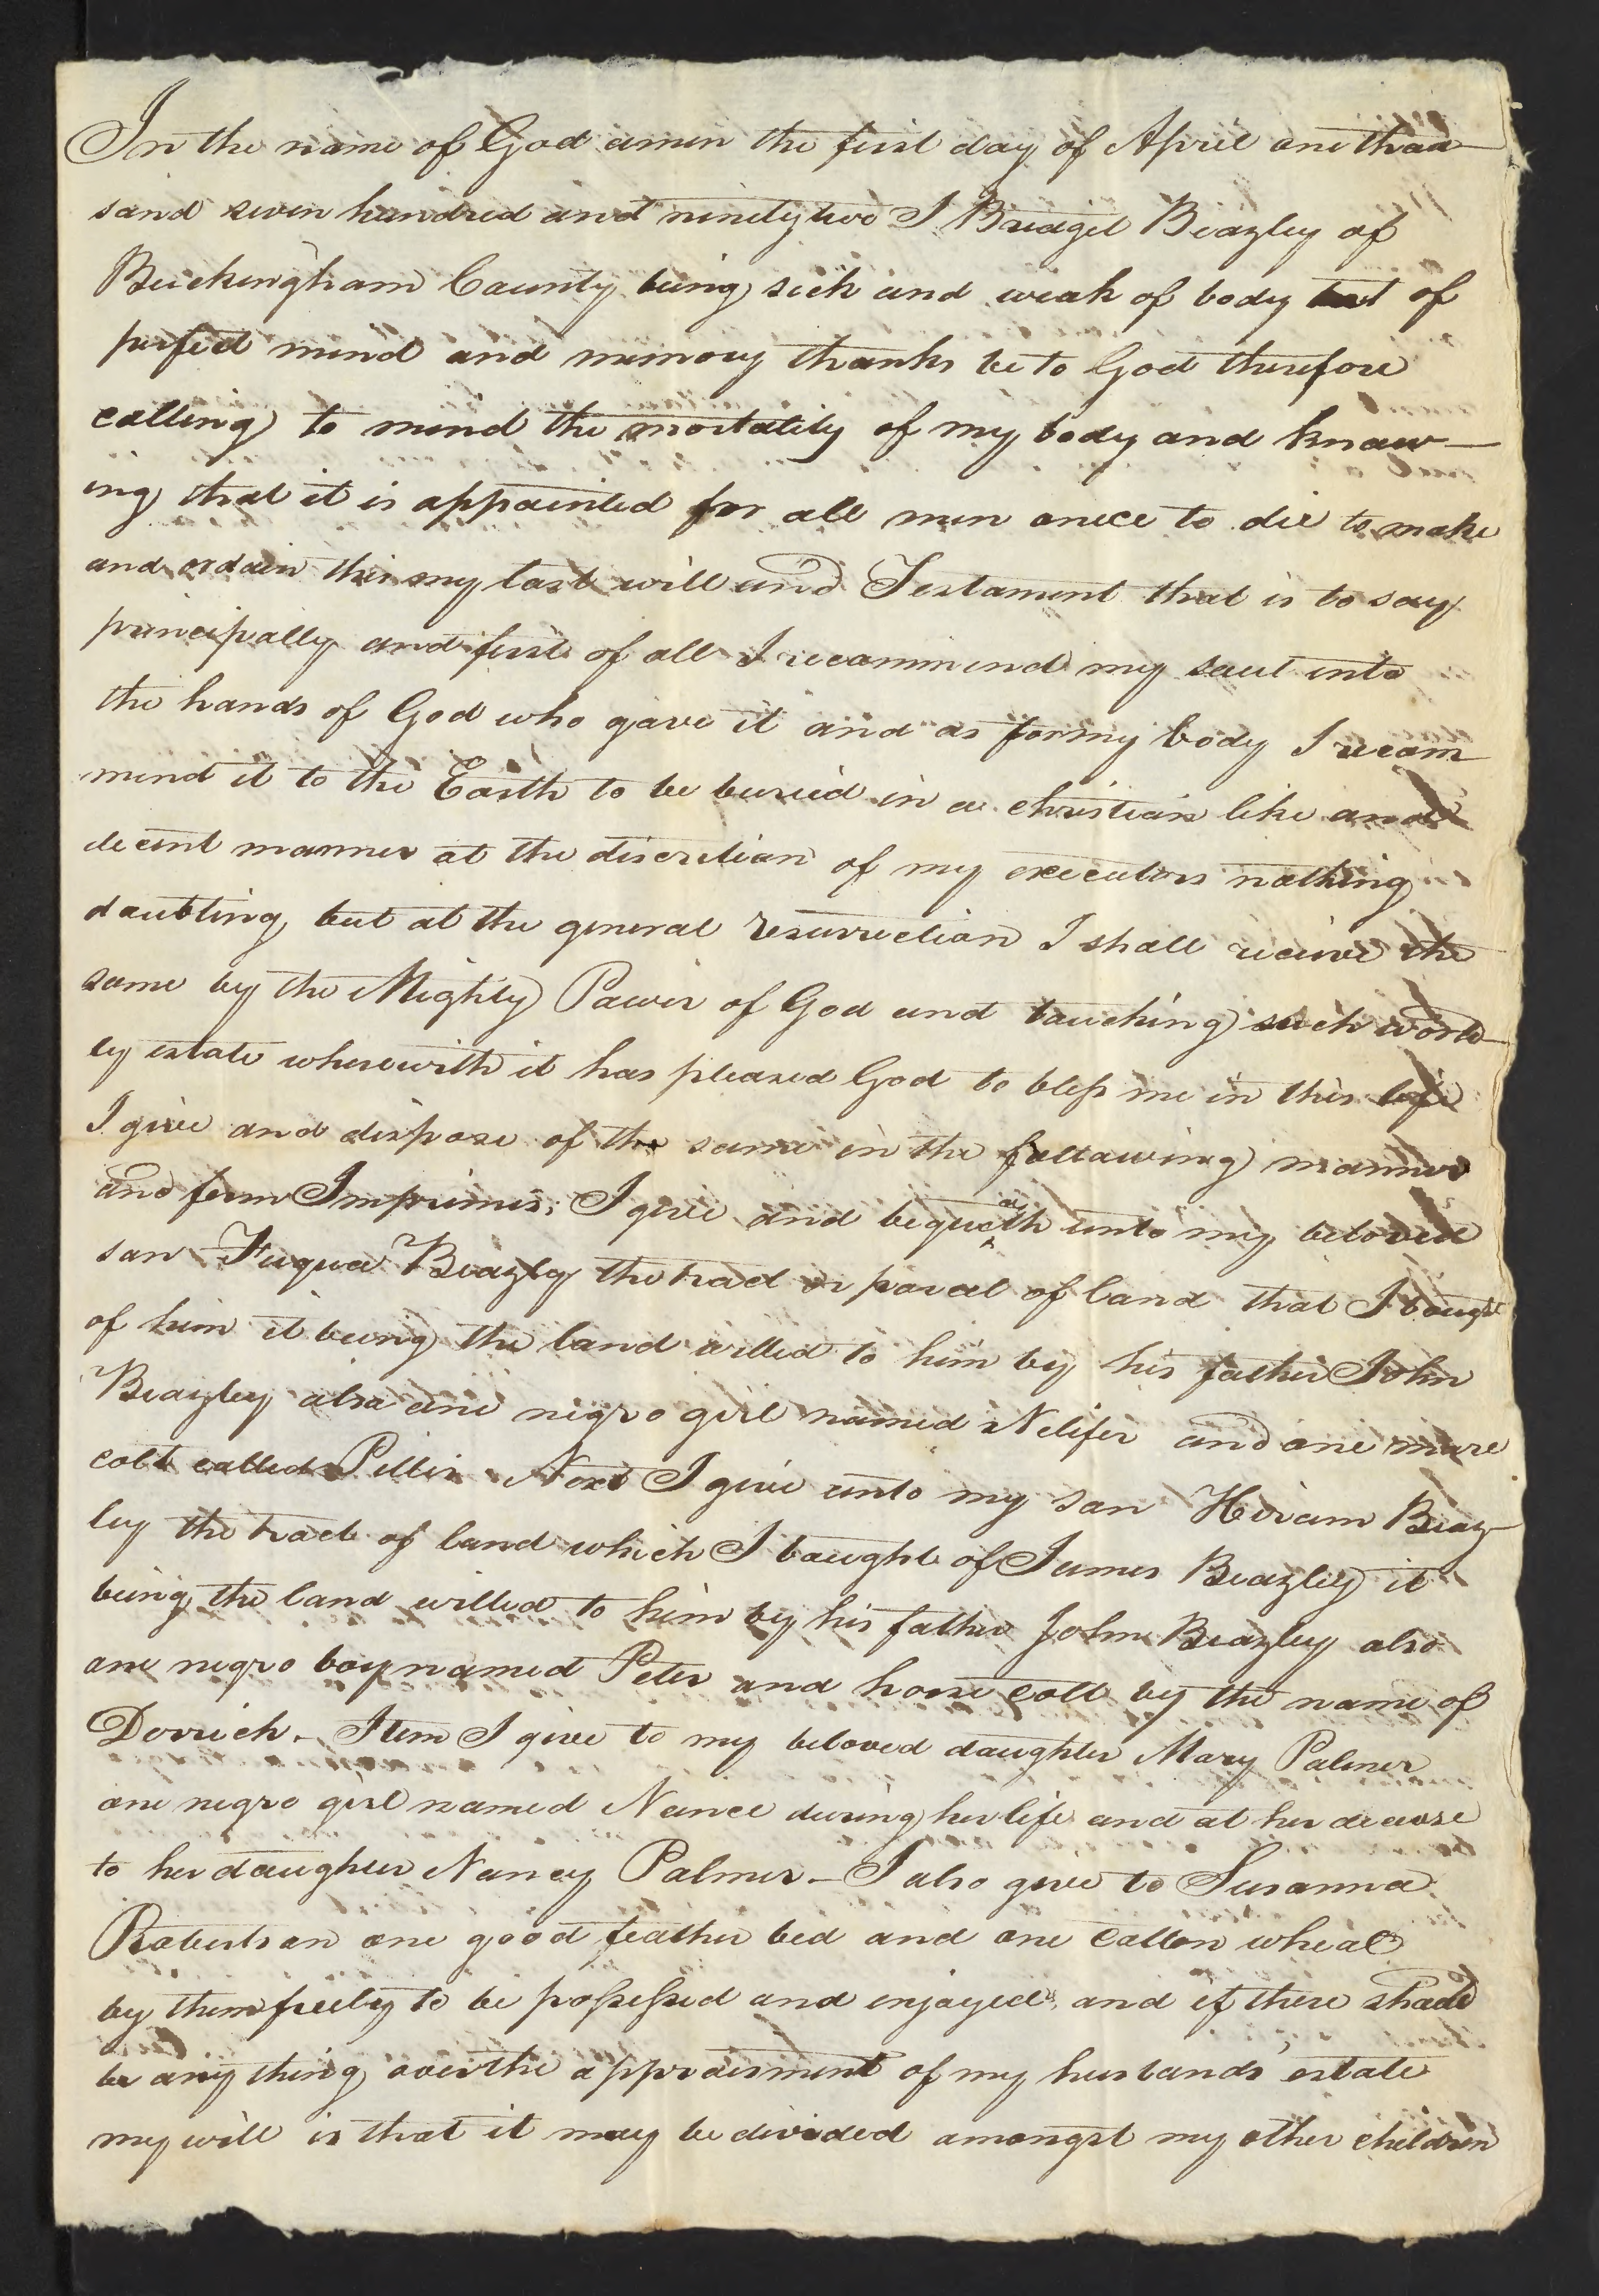 In the name of God amen the first day of April one thou
sand seven hundred and ninety two I Bridget Beazley of
Buckingham County being sick and weak of body but of
perfect mind and memory thanks be to God therefore
calling to mind the mortality of my body and know-
ing that it is appointed for all men once to die to make
and ordain this my last will and Testament that is to say
principally and first of all I recommend my soul into
the hands of God who gave it and as for my body I recom
mend it to the Earth to be buried in a christian like and
decent manner at the discretion of my executors nothing
doubting but at the general resurrection I shall receive the
same by the Mighty Power of God and touching such world
ly estate wherewith it has pleased God to bless me in this life
I give and dispose of the same in the following manner
and form Imprimis; I give and bequeath unto my beloved
son Fuqua Beazley the tract or parcel of land that I bought
of him it being the land willed to him by his father John
Beazley also one negro girl named Nelifer and one mare
colt called Pillir Next I give unto my son Hiram Beaz
ley the tract of land which I bought of James Beazley it
being the land willed to him by his father John Beazley also
one negro boy named Peter and horse colt by the name of
Derrick - Item I give to my beloved daughter Mary Palmer
one negro girl named Nance during her life and at her decease
to her daughter Nancy Palmer - I also give to Susanna
Robertson one good feather bed and one cotton wheal
by them freely to be possessed and enjoyed, and if there should
be any thing over the appraisment of my husbands' estate
my will is that it may be divided amongst my other children